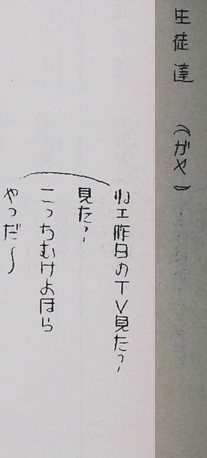 生徒達 (ガヤ)
ねエ昨日のTV見た?
見た?
こっちむけよほら
やっだ〜